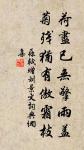 荷盡已無擎雨蓋
菊殘猶有傲霜枝
蘇軾贈劉景文詞典網
集